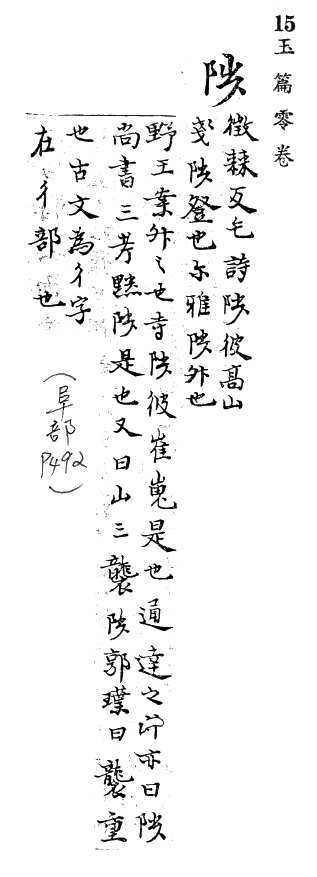 15玉篇零卷
陟
徵棘反毛詩陟彼髙山
戔陟登也尓雅陟外也
野王案外之也寺陟彼崔嵬是也通達之亦曰陟
尚書三考黜陟是也又曰山三襲陟郭璞曰襲重
也古文為彳字
在彳部也
(阜部
P492)